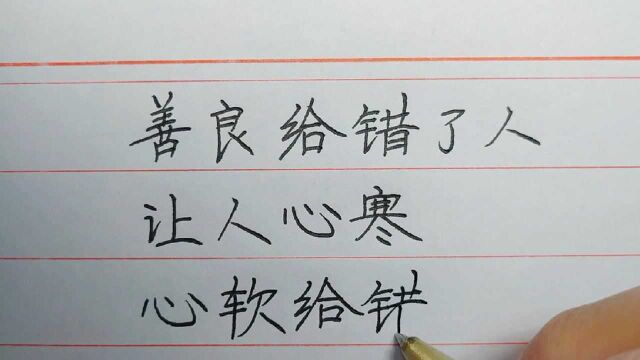 善良给错了人
让人心寒
心软给